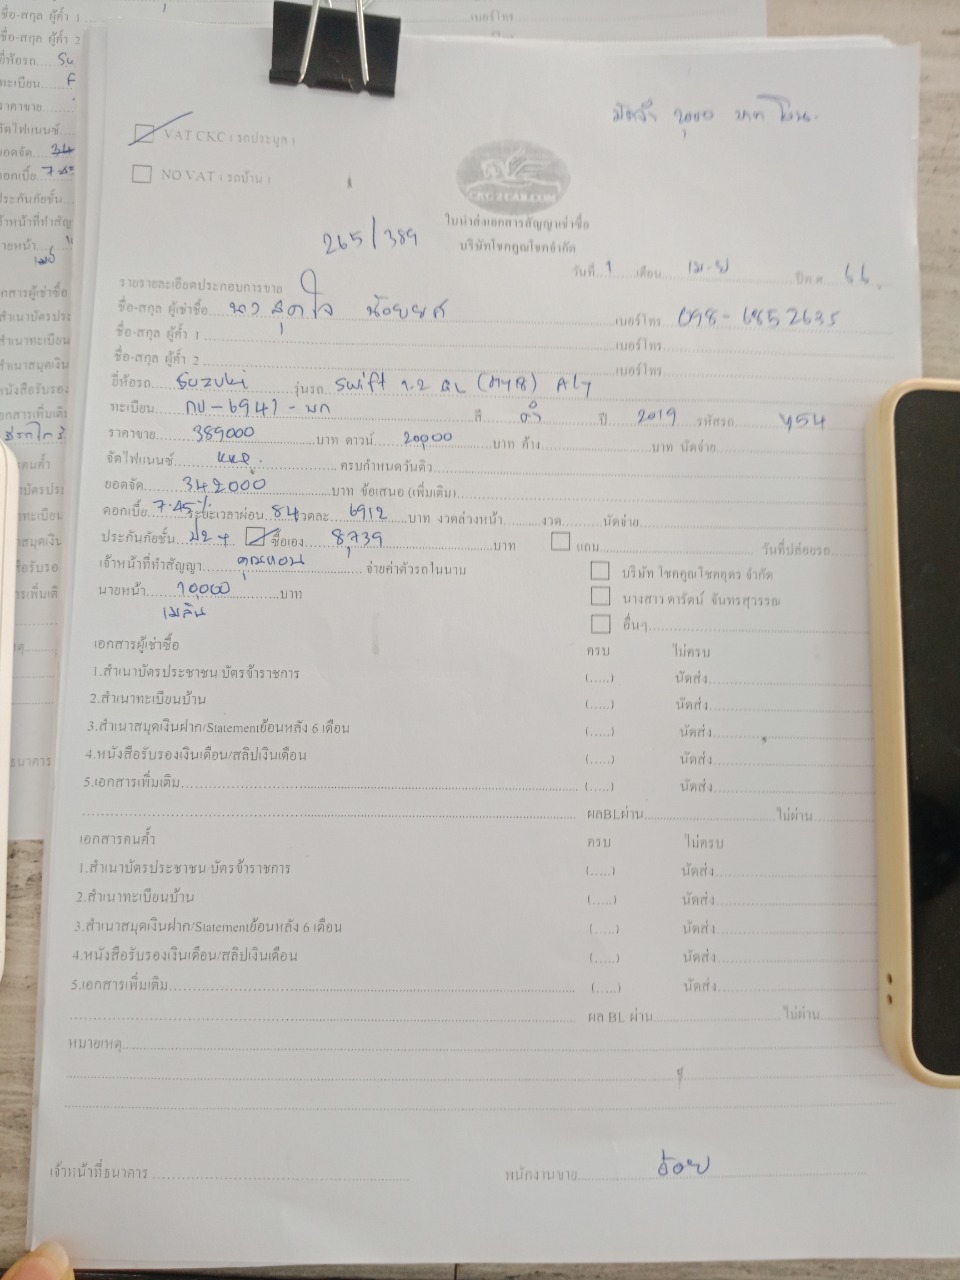 มัดจำ 2,000 บาท โอน
VAT CKC ( รถประมูล )
NO VAT ( รถบ้าน )
CKC 2 CAR.COM
ใบนำส่งเอกสารสัญญาเช่าซื้อ
265/389
บริษัทโชคคูณโชคจำกัด
วันที่ 1 เดือน เม.ย ปีพ.ศ 66
รายรายละเอียดประกอบการขาย
ชื่อ-สกุล ผู้เช่าซื้อ นาว สุดใจ น้อยยศ เบอร์โทร 098-6852635
ชื่อ-สกุล ผู้ค้ำ 1 เบอร์โทร
ชื่อ-สกุล ผู้ค้ำ 2 เบอร์โทร
ยี่ห้อรถ Suzuki รุ่นรถ Swift 1.2 GL (MY18)
ทะเบียน กบ-6947-นก สี ดำ ปี 2019 รหัสรถ Y54
ราคาขาย 389000 บาท ดาวน์ 20,000 บาท ค้าง บาท นัดจ่าย
จัดไฟแนนซ์ KKP ครบกำหนดวันคิว
ยอดจัด 342000 บาท ข้อเสนอ (เพิ่มเติม)
ดอกเบี้ย 7.45% ระยะเวลาผ่อน 84 งวดละ 6912 บาท งวดล่วงหน้า งวด นัดจ่าย
ประกันภัยชั้น ป2+ ซื้อเอง 8,739 บาท แถม วันที่ปล่อยรถ
เจ้าหน้าที่ทำสัญญา จ่ายค่าตัวรถในนาม บริษัท โชคคูณโชคอุดร จำกัด
นายหน้า 10,000 บาท นางสาว ดารัตน์ จันทรสุวรรณ
เมลิน อื่นๆ
เอกสารผู้เช่าซื้อ ครบ ไม่ครบ
1.สำเนาบัตรประชาชน/บัตรข้าราชการ (.....) นัดส่ง
2.สำเนาทะเบียนบ้าน (.....) นัดส่ง
3.สำเนาสมุดเงินฝาก/Statementย้อนหลัง 6 เดือน (.....) นัดส่ง
4.หนังสือรับรองเงินเดือน/สลิปเงินเดือน (.....) นัดส่ง
5.เอกสารเพิ่มเติม (.....) นัดส่ง
ผลBLผ่าน ไม่ผ่าน
เอกสารคนค้ำ ครบ ไม่ครบ
1.สำเนาบัตรประชาชน/บัตรข้าราชการ (.....) นัดส่ง
2.สำเนาทะเบียนบ้าน (.....) นัดส่ง
3.สำเนาสมุดเงินฝาก/Statementย้อนหลัง 6 เดือน (.....) นัดส่ง
4.หนังสือรับรองเงินเดือน/สลิปเงินเดือน (.....) นัดส่ง
5.เอกสารเพิ่มเติม (.....) นัดส่ง
ผล BL ผ่าน ไม่ผ่าน
หมายเหตุ
เจ้าหน้าที่ธนาคาร พนักงานขาย อ้อย